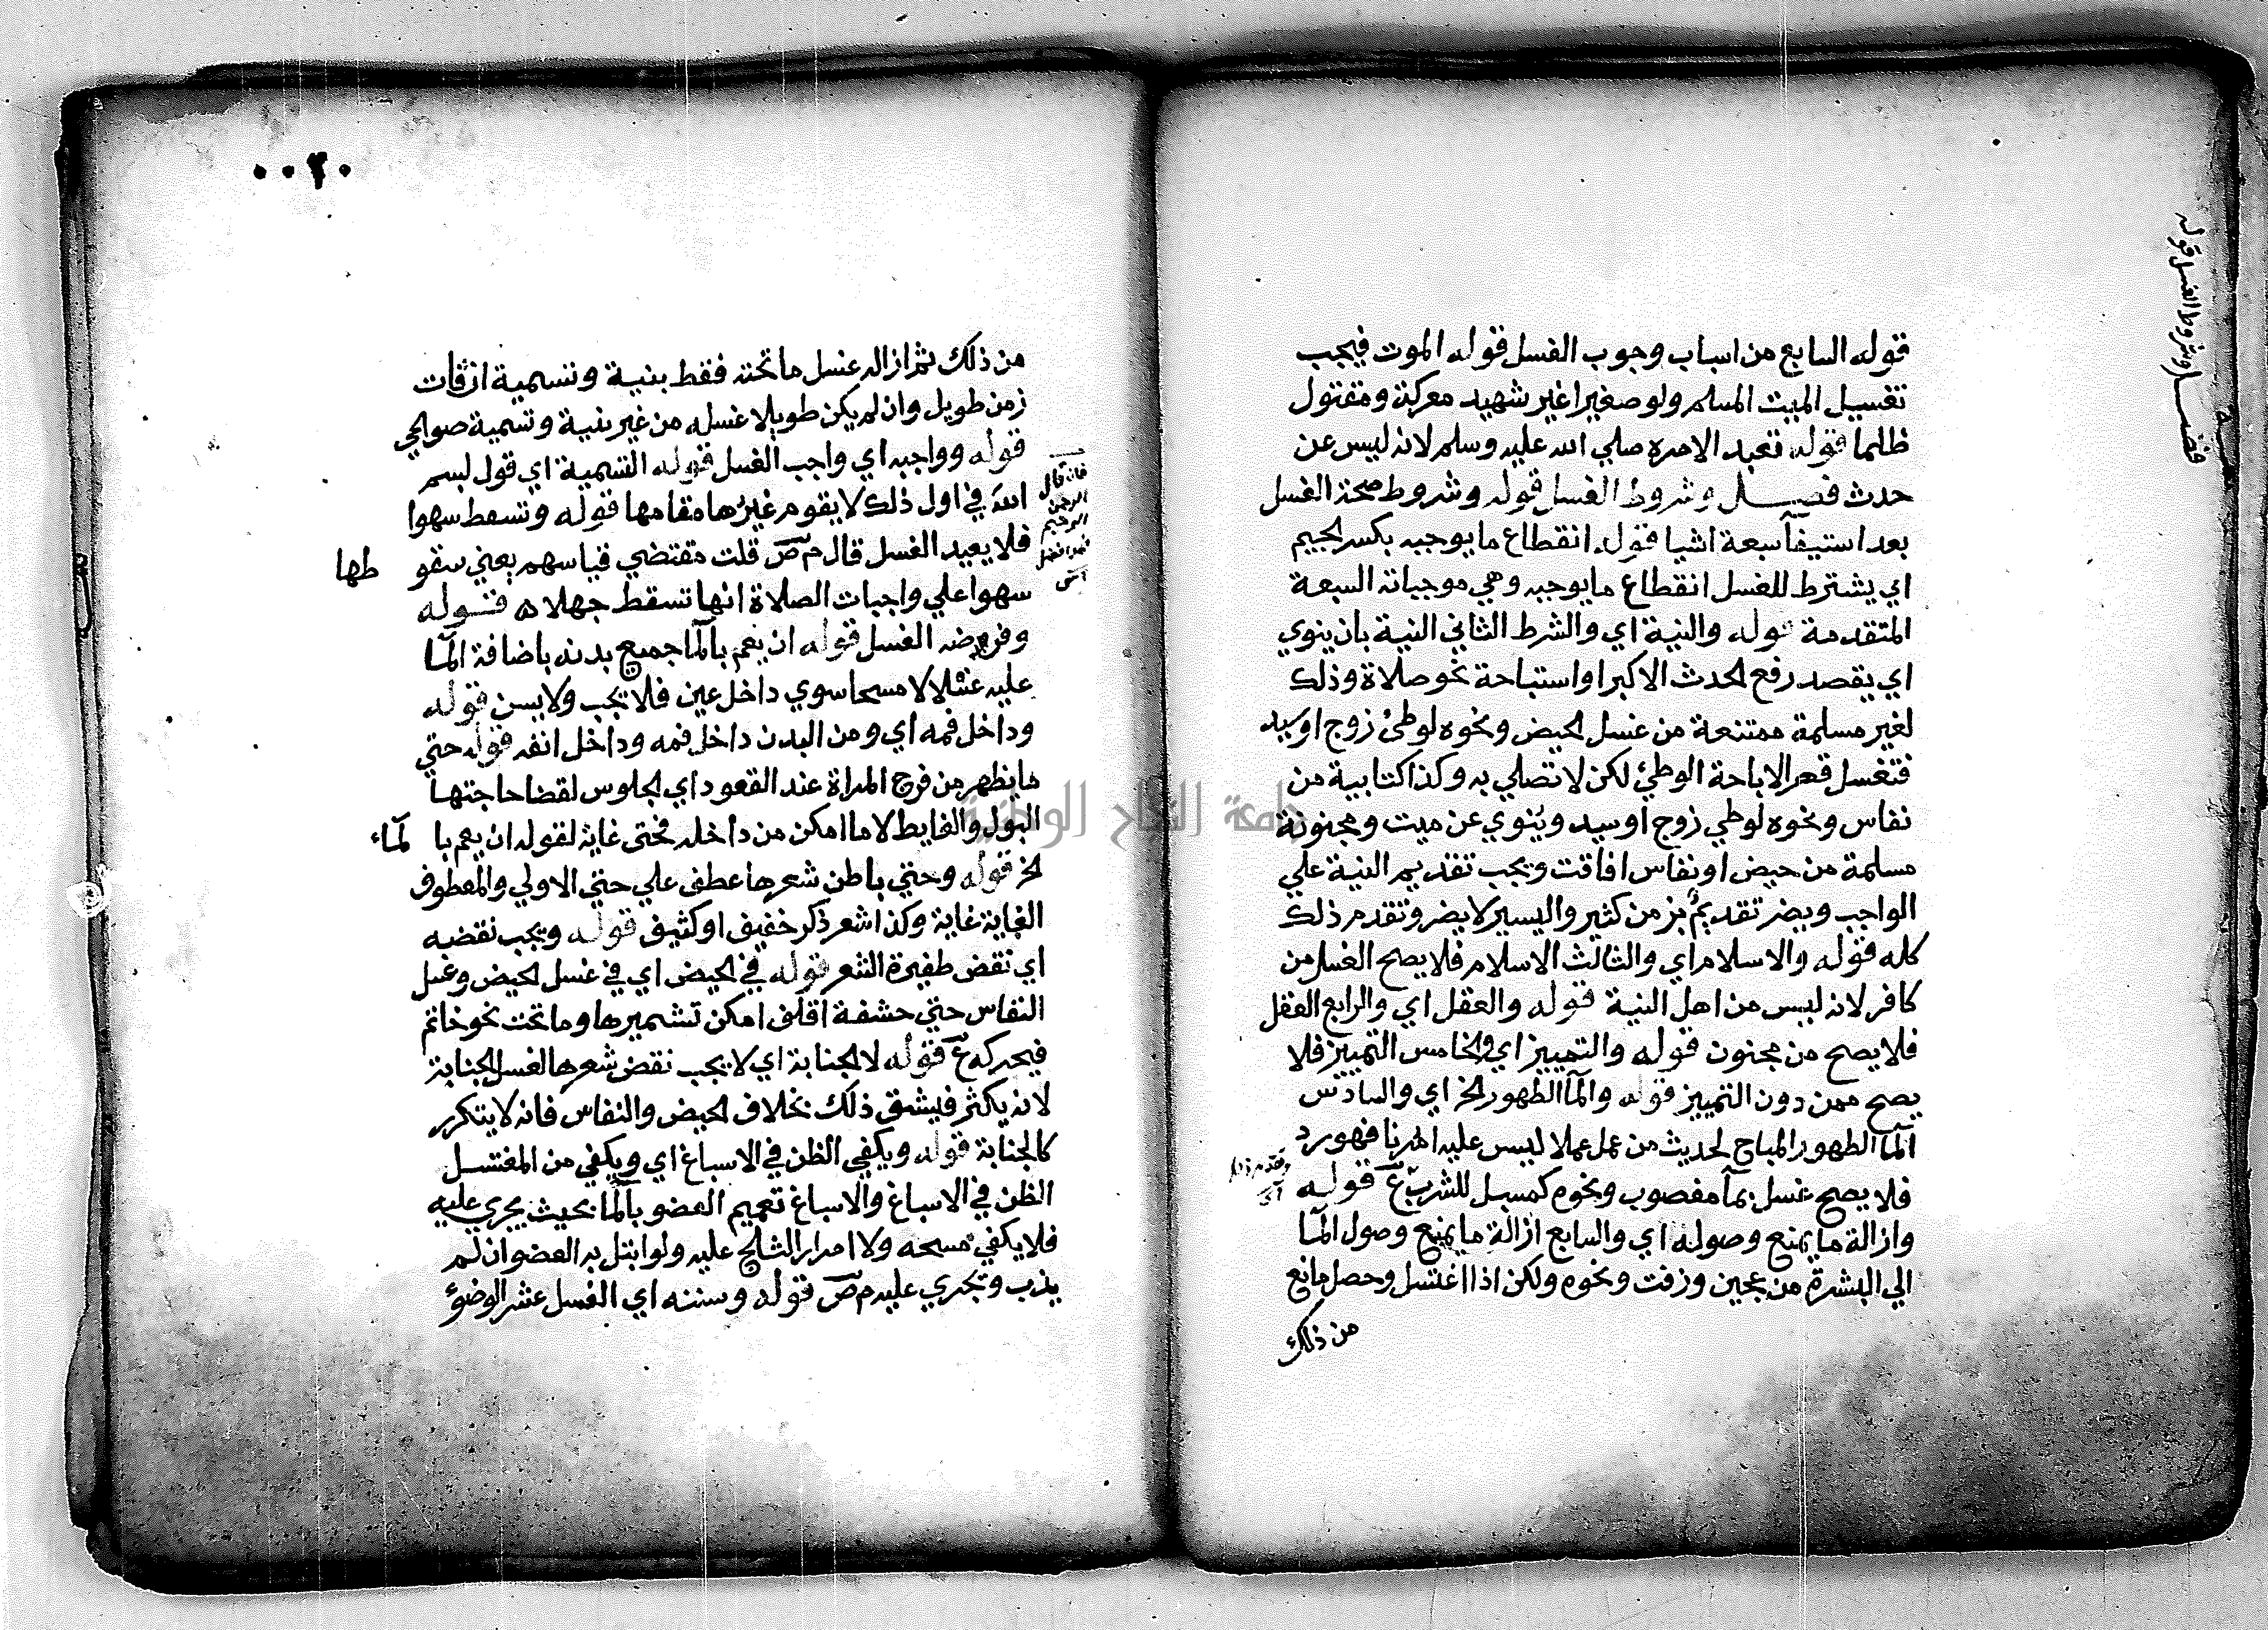 فصل وشروط الغسل قوله
قوله السابع من اسباب وجوب الغسل قوله الموت فيجب
تغسيل الميت المسلم ولو صغيرا غير شهيد معركة ومقتول
ظلما قوله تعبد الامره صلي الله عليه وسلم لانه ليس عن
حدث فصل وشروط الغسل قوله وشروط صحة الغسل
بعد استيفآ سبعة اشيا قوله انقطاع ما يوجبه بكسر الجيم
اي يشترط للغسل انقطاع ما يوجبه وهي موجباته السبعة
المتقدمة قوله والنية اي والشرط الثاني النية بان ينوي
اي يقصد رفع الحدث الاكبر او استباحة نحو صلاة وذلك
لغير مسلمة ممتنعة من غسل لحيض ونحوه لوطئ زوج او سيد
فتغسل قهرا لاباحة الوطئ لكن لا تصلي به وكذا كتابية من
نفاس ونحوه لوطي زوج او سيد وينوي عن ميت ومجنونة
مسلمة من حيض او نفاس افاقت ويجب تقديم النية علي
الواجب ويضر تقديمٌ بزمن كثير واليسير لا يضر وتقدم ذلك
كله قوله والاسلام اي والثالث الاسلام فلا يصح الغسل من
كافر لانه ليس من اهل النية قوله والعقل اي والرابع العقل
فلا يصح من مجنون قوله والتمييز اي والخامس التمييز فلا
يصح ممن دون التمييز قوله والمآ الطهور الخ اي والسادس
المآ الطهور المباح لحديث من عمل عملا ليس عليه امرنا فهو رد
وتقدم ذلك
فلا يصح غسل بمآ مغصوب ونحوه كمسبل للشرب ع قوله
وازالة ما يمنع وصوله اي والسابع ازالة ما يمنع وصول المآ
الي البشرة من عجين وزفت ونحوه ولكن اذا اغتسل وحصل مانع
من ذلك
٠٠٢٠
من ذلك ثم ازاله غسل ما تحته فقط بنية وتسمية ان فات
زمن طويل وان لم يكن طويلا غسله من غير نية وتسمية صوالحي
قوله وواجبه اي واجب الغسل قوله التسمية اي قول بسم
الله في اول ذلك لا يقوم غيرها مقامها قوله وتسقط سهوا
فان قال
الرحمن
الرحيم
فلا يعيد الغسل قال م ص قلت مقتضي قياسهم يعني سقو طها
سهوا علي واجبات الصلاة انها تسقط جهلا ه قوله
وفرضه الغسل قوله ان يعم بالمآ جميع بدنه باضافة المآ
عليه غسلا لا مسحا سوي داخل عين فلا تجب ولا يسن قوله
وداخل فمه اي ومن البدن داخل فمه وداخل انفه قوله حتي
ما يظهر من فرج المراة عند القعود اي الجلوس لقضا حاجتها
البول والغايط لا ما امكن من داخله فحتى غاية لقوله ان يعم با لمآء
الخ قوله وحتي باطن شعرها عطف علي حتي الاولي والمعطوف
الغاية غاية وكذا شعر ذكر خفيف او كثيف قوله ويجب نقضه
اي نقض ظفيرة الشعر قوله في لحيض اي في غسل لحيض وغسل
النفاس حتي حشفة اقلف امكن تشميرها وما تحت نحو خاتم
فيحركه ع قوله لا لجنابة اي لا يجب نقض شعرها لغسل الجنابة
لانه يكثر فيشق ذلك بخلاف لحيض والنفاس فانه لا يتكرر
كالجنابة قوله ويكفي الظن في الاسباغ اي ويكفي من المغتسل
الظن في الاسباغ والاسباغ تعميم العضو بالمآ بحيث يجري عليه
فلا يكفي مسحه ولا امرار الثلج عليه ولو ابتل به العضو ان لم
يذب ويجري عليه م ص قوله وسننه اي الغسل عشر الوضوء
جامعة النجاح الوطنية